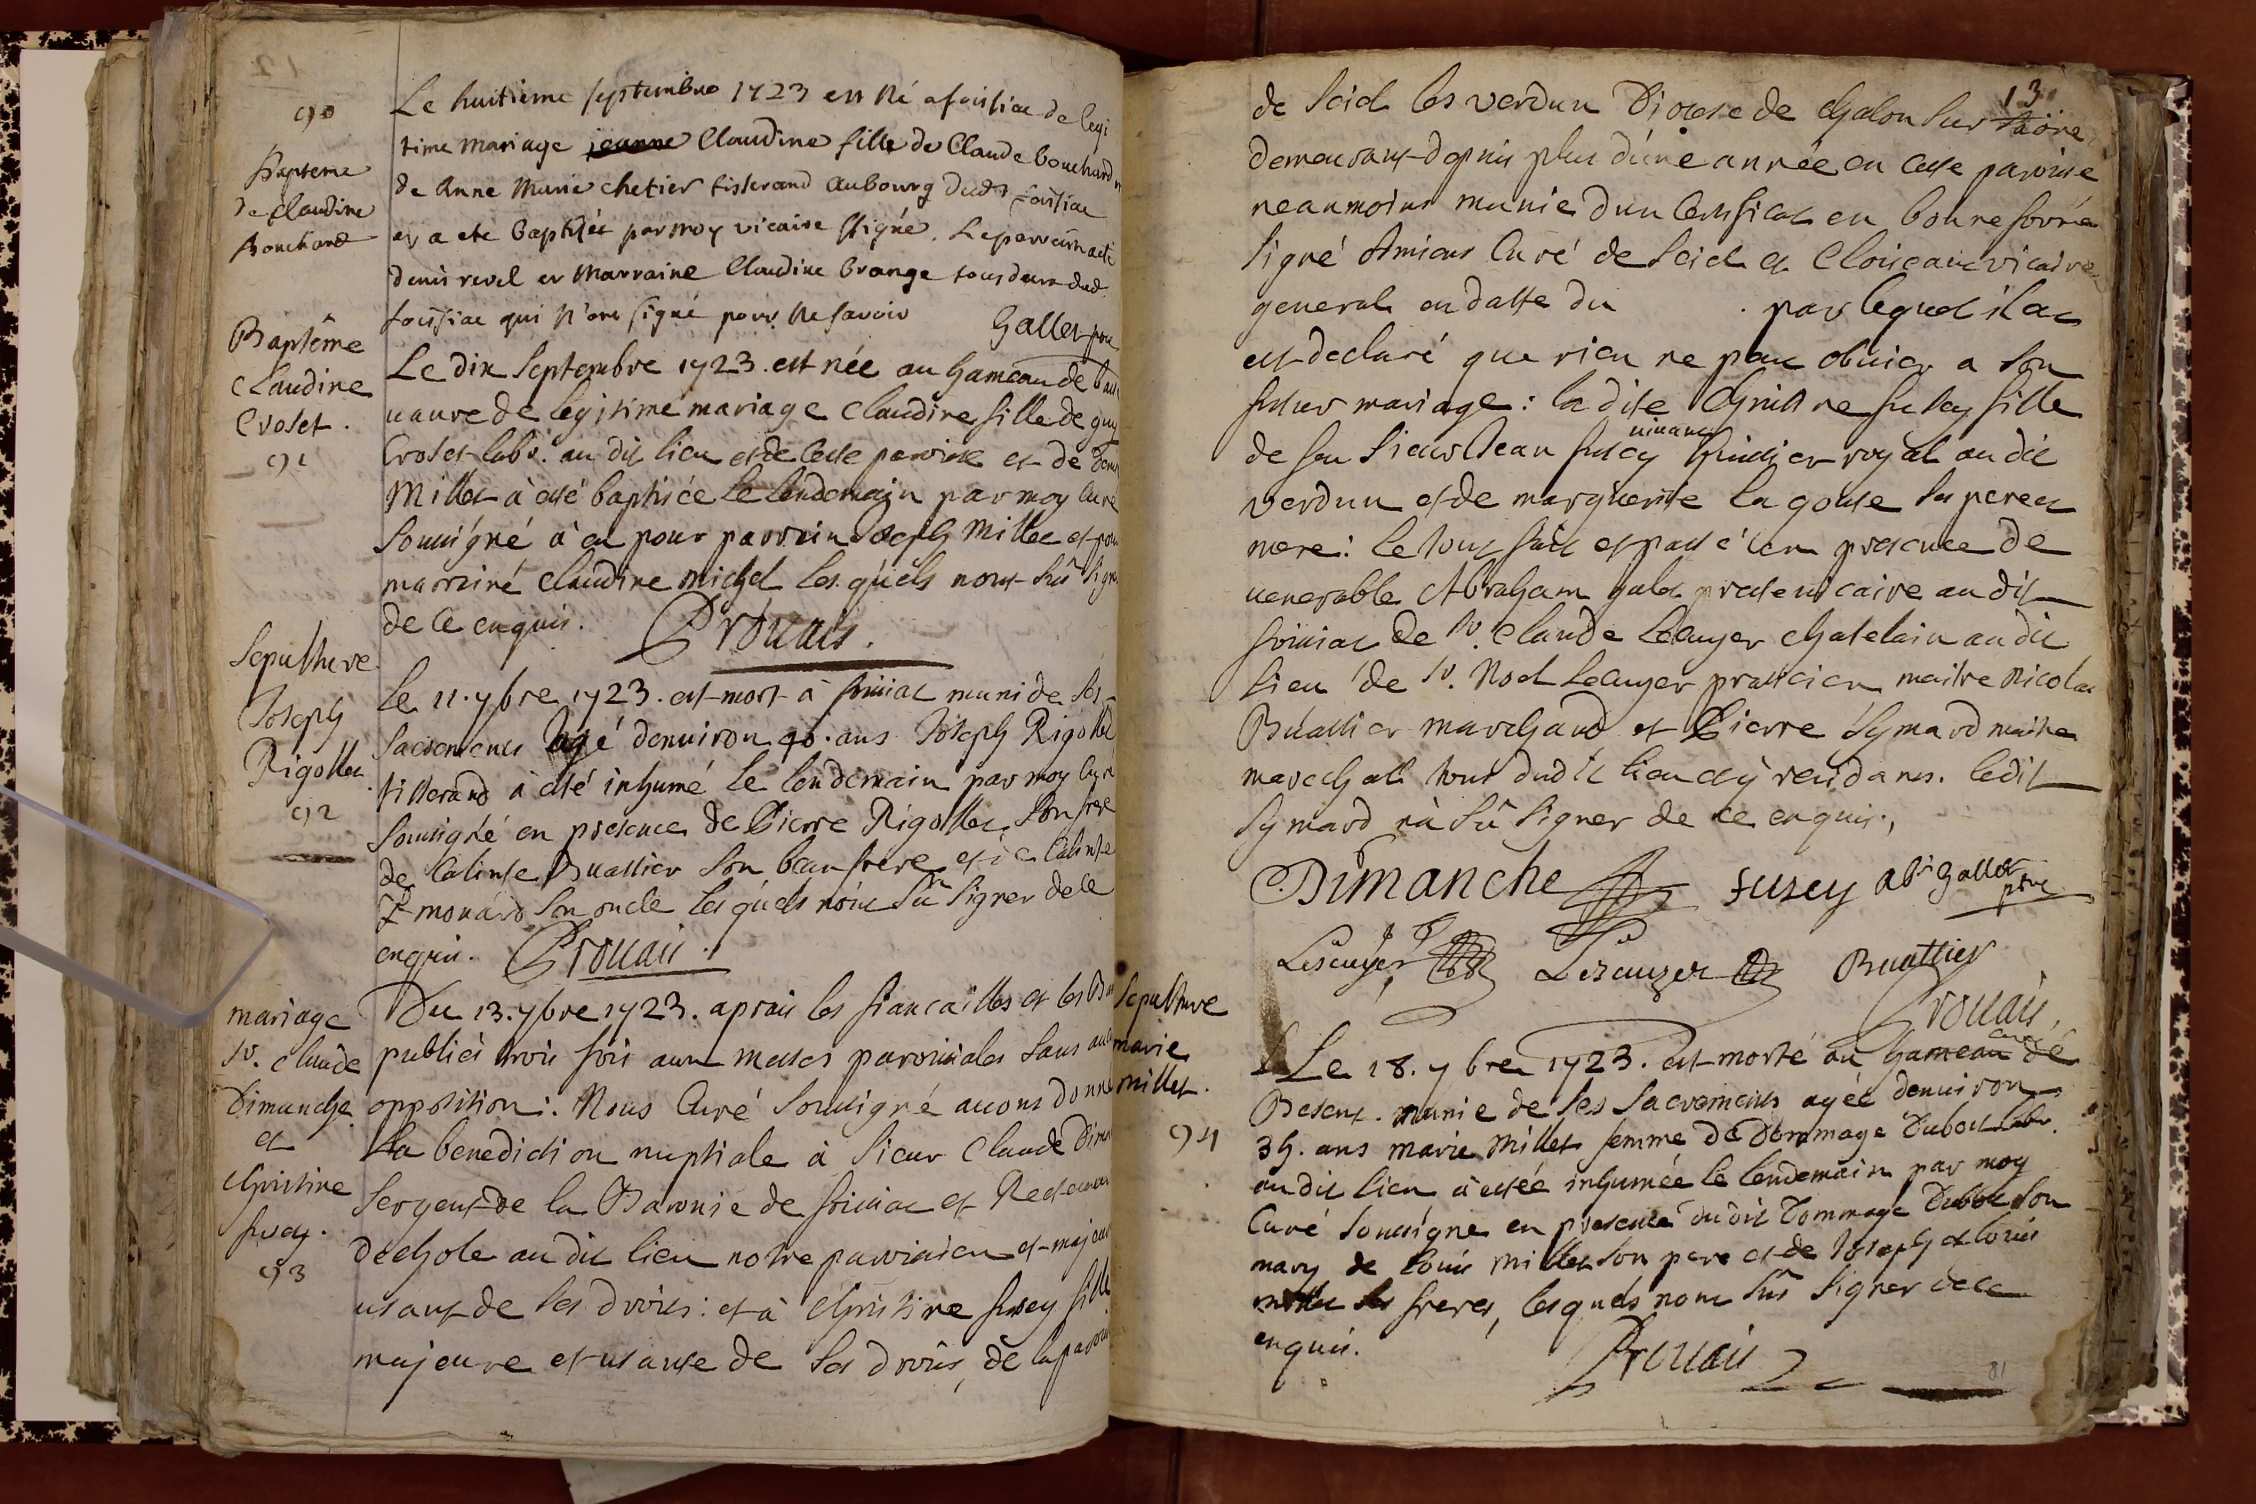 90
Bapteme
de Claudine
Bouchard
Le huitieme septembre 1723 est né a foissiac de legi
time mariage jeanne Claudine fille de Claude bouchard et
de Anne Marie chetier tisserand au bourg dudt foissiac
et a ete baptisée par moy vicaire ssigné. Le parrain a ete
denis revel et Marraine Claudine brange tous deux dud.
foissiac qui n'ont signé pour ne savoir
Gallet ptre
Baptême
Claudine
Croset.
91
Le dix Septembre 1723. est née au hameau de
de legitime mariage Claudine fille de guy
Croset labr. au dit lieu et de cette paroisse et de
Millet à eté baptisée le lendemain par moy Curé
Soussigné à eu pour parrain Joseph Millet et pour
marraine Claudine Michel lesquels n'ont sû signer
de ce enquis. Prouais.
Sepulture
Joseph
Rigollet.
92
Le 11. 7bre 1723. est mort à foissiac muni de ses
Sacremens agé d'environ 40. ans Joseph Rigollet
tisserand à eté inhumé le lendemain par moy Curé
Soussigné en presence de Pierre Rigollet son frere
de Calixte Buattier son beau frere et de Calixte
monard son oncle lesquels n'ont sû signer de ce
enquis. Prouais.
mariage
Sr. Claude
Dimanche
et
Christine
fusey.
93
Du 13. 7bre 1723. aprais les fiancailles et les
publiés trois fois aux messes paroissiales sans
opposition: Nous Curé Soussigné avons donné
la benediction nuptiale à Sieur Claude
Sergent de la Baronie de foissiac et Recteur
d'echole au dit lieu notre paroissien et majeur
usant de ses droits: et à Christine fusey fille
majeure et usante de ses droits, de la
13
de Sciel les verdun Diocese de Chalon sur Saône
demeurant depuis plus d'une année en cette paroisse
neanmoins munie d'un Certificat en bonne forme
Signé Amiens Curé de Sciel et Cloiseau vicaire
general en datte du . par lequel il
est declaré que rien ne peut obvier a son
futur mariage: la dite Christine fusey fille
de feu Sieur Jean fusey vivant huissier royal au dit
verdun et de marguerite la gouse ses pere et
mere: le tout fait et passé en presence de
venerable Abraham galet pretre vicaire au dit
foissiac de Sr. Claude Lecuyer chatelain au dit
lieu de Sr. Noel Lecuyer praticien maitre Nicolas
Buattier marchand et Pierre Symard maitre
marechal tous dudit lieu et y residans. ledit
Symard n'a sû signer de ce enquis.,
Dimanche fusey abr gallet
ptre
Lescuyer Lescuyer Buattier
Prouais,
curé
Sepulture
marie
millet.
94
Le 18. 7bre 1723. est morte au hameau de
munie de ses Sacremens agée d'environ
35. ans marie Millet femme de Dommage Dubost labr.
au dit lieu à etée inhumée le lendemain par moy
Curé Soussigné en presence dudit Dommage Dubost son
mary de Louis millet son pere et de Joseph et Louis
millet ses freres, lesquels n'ont sû signer de ce
enquis.
Prouais